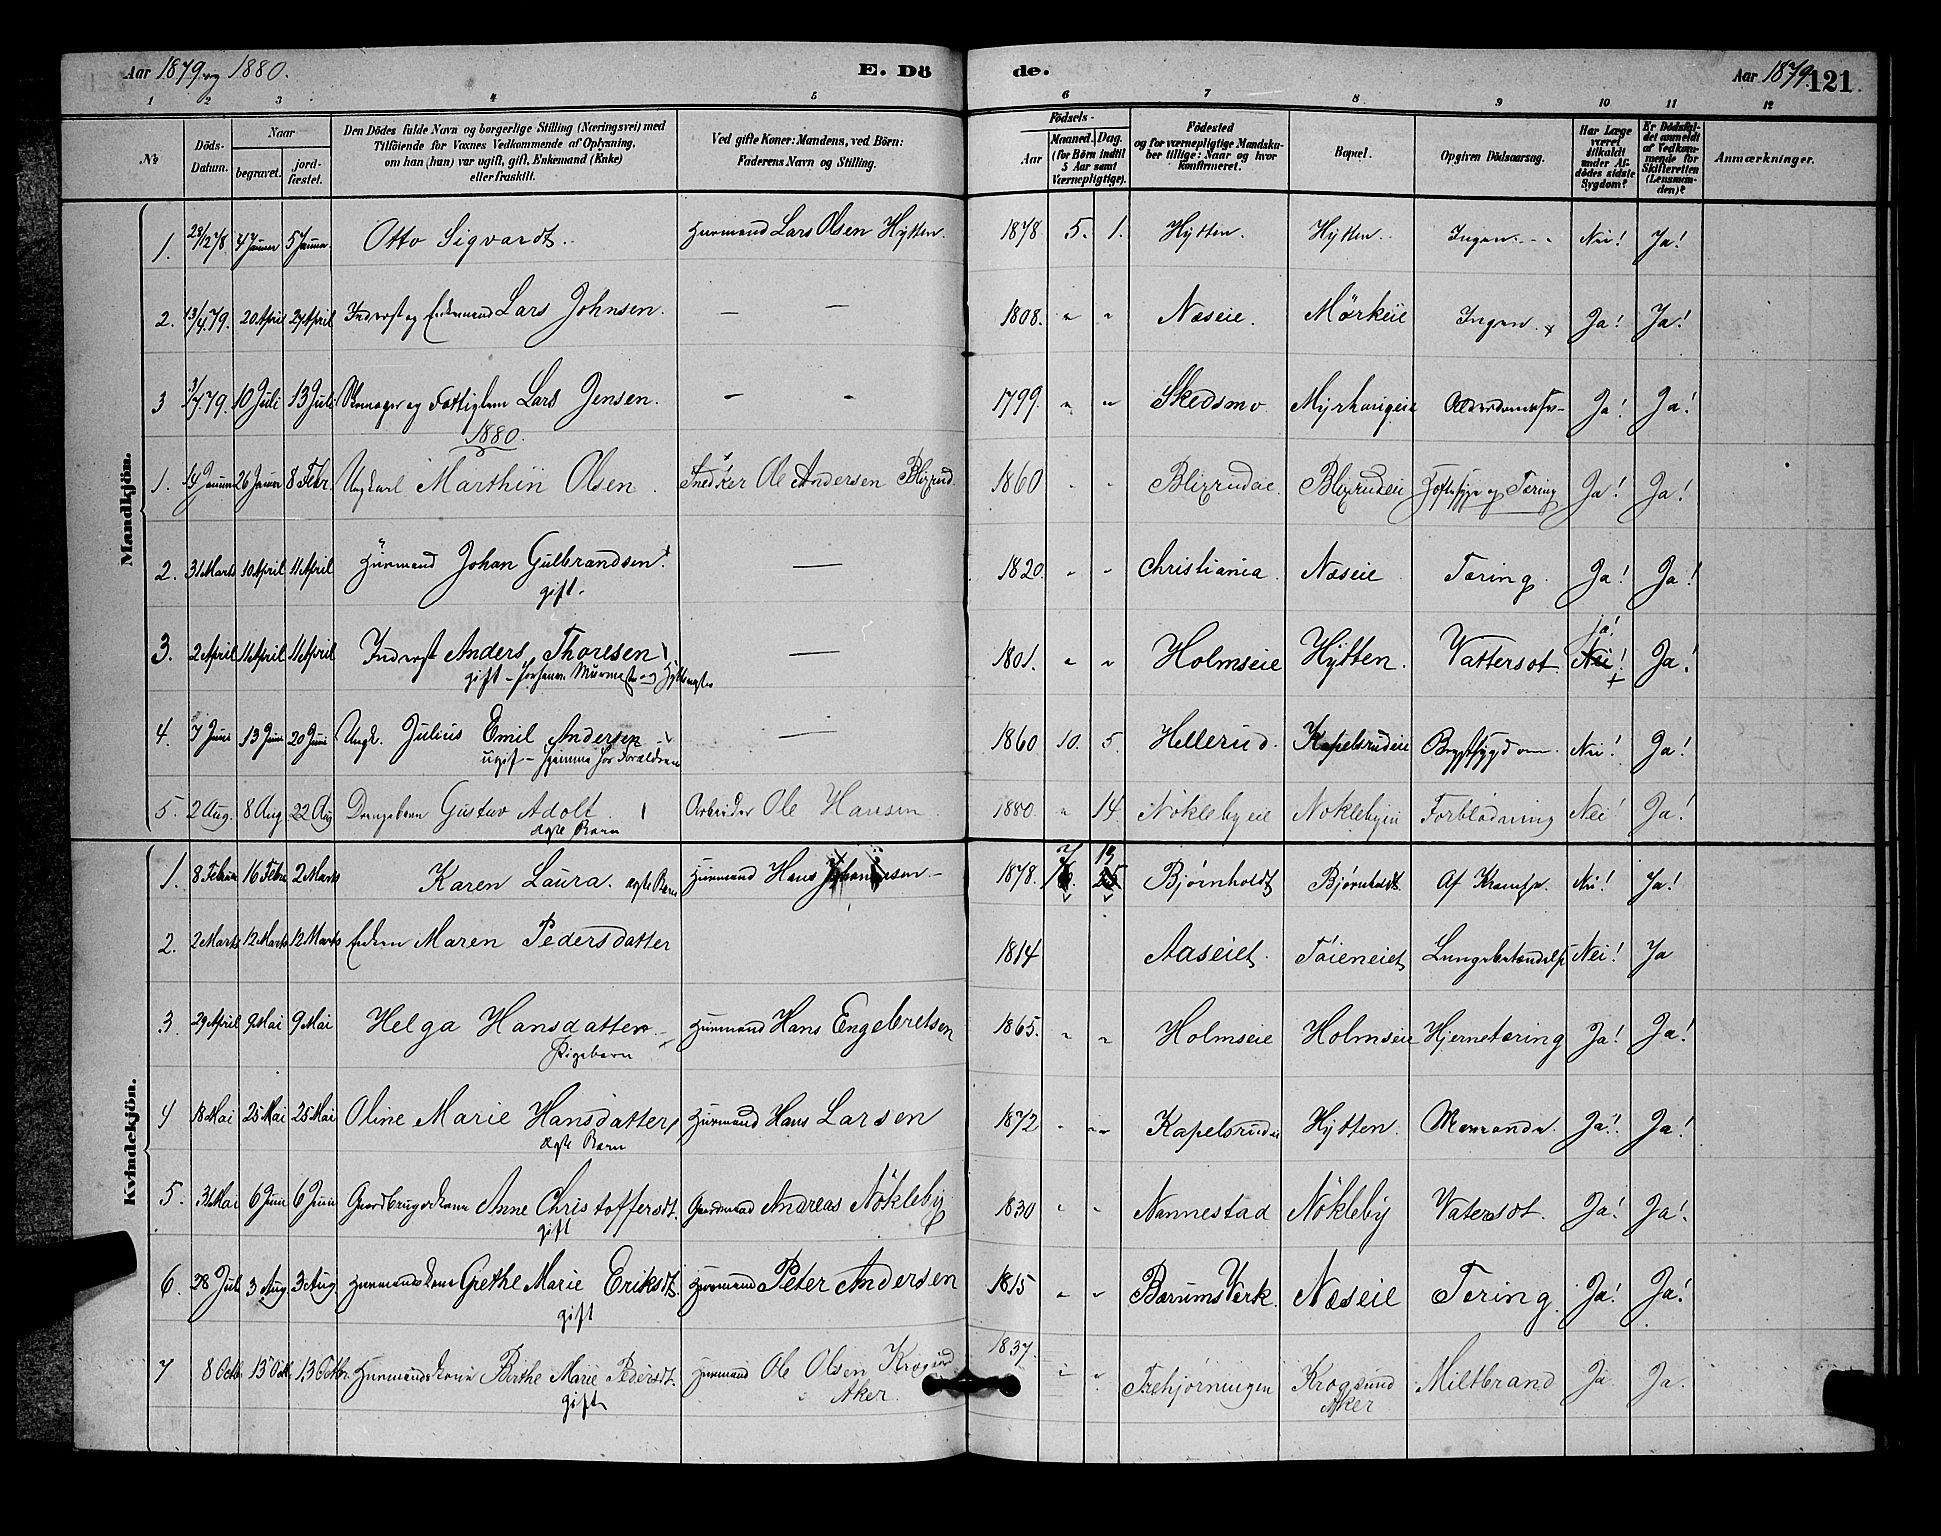 Aar 1879 og 1880. E. Dö de. Aar 1879. 121
1 2 3 4 5 6 7 8 9 10 11 12
No
Döds-Datum.
Naar
begravet.
jord-fæstet.
Den Dödes fulde Navn og borgerlige Stilling (Næringsvei) med
Tilföiende for Voxnes Vedkommende af Oplysning,
om han (hun) var ugift, gift, Enkemand (Enke)
eller fraskilt.
Ved gifte Koner: Mandens, ved Börn:
Faderens Navn og Stilling.
Födsels-
Aar
Maaned. Dag.
(for Börn indtil
5 Aar samt
Værnepligtige).
Födested
og for værnepligtige Mandska-
ber tillige: Naar og hvor
konfirmeret.
Bopæl.
Opgiven Dödsaarsag.
Har Læge
været
tilkaldt
under Af-
dödes sidste
Sygdom?
Er Dödsfal-
det anmeldt
af Vedkom-
mende for
Skifteretten
(Lensman-
den)?
Anmærkninger.
Mandkjön.
1. 28/12 78. 4 Januar 5 Januar Otto Sigvardt. Husmand Lars Olsen Hytten. 1878 5. 1. Hytten. Hytten. Ingen. Nei! Ja!
2. 13/4 79. 20 April 27 April Inderst og Enkemand Lars Johnsen. — — 1808. " " Næseie. Mørkeie Ingen. Ja! Ja!
3 3/7 79. 10 Juli 13 Juli og Fattiglem Lars Jensen. — - 1799. " " Skedsmo Myrhaugeie Ja! Ja!
1880.
1. 19 Januar 26 Januar 8 Febr. Ungkarl Marthin Olsen. Snedker Ole Andersen Blixrud. 1860 " " Blixrudae. Blixrudeie og Tæring Ja! Ja!
2. 31 Marts 10 April 11 April Husmand Johan Gulbrandsen. — 1820. " " Christiania. Næseie Tæring. Ja! Ja!
gift.
3. 2 April 11 April 11 April Inderst Anders Thoresen — 1801. " " Holmseie Hytten. Vattersot. Nei! Ja! Ja!
gift -
4. 7 Juni 13 Juni 20 Juni Ungk. Julius Emil Andersen — 1860 10. 5. Hellerud. Kapelsrudeie Brystsygdom. Nei! Ja!
ugift - hjemme hos Forældrene
5. 2 Aug. 8 Aug 22 Aug Drengebarn Gustav Adolf. Arbeider Ole Hansen. 1880. " 14. Nöklebyeie Noklebyeie Forblödning Nei! Ja!
ægte Barn
Kvindekjön.
1. 8 Februar 16 Febr 2 Marts Karen Laura. ægte Barn Husmand Hans 1878. 7 13 25 Bjørnholdt Bjørnholdt Af Krampe. Nei! Ja!
2. 2 Marts 12 Marts 12 Marts Enken Maren Pedersdatter 1814 Aaseiet. Töieneiet Lungebetændelse Nei! Ja
3. 29 April 9 Mai 9 Mai Helga Hansdatter Husmand Hans Engebretsen 1865. " " Holmseie Holmseie Hjernetæring Ja! Ja!
Pigebarn
4 18 Mai 25 Mai 25 Mai Oline Marie Hansdatter Husmand Hans Larsen 1872 " " Kapelsrudeie Hytten. Ja! Ja!
ægte Barn
5. 31 Mai 6 Juni 6 Juni Gaardbrugerkone Anne Christoffersdt. Gaardmand Andreas Nökleby 1830 " " Nannestad Nökleby Vatersot. Ja! Ja!
gift
6. 28 Juli 3 Aug. 3 Aug Husmandskone Grethe Marie Eriksdt. Husmand Peter Andersen 1815 " " BærumsVerk. Næseie Tæring. Ja! Ja!
gift
7 8 Octb. 13 Octb. 13 Octbr. Husmandskone Birthe Marie Pedersdt. Husmand Ole Olsen Krogsund 1837. " " Trehjørningen Krogsund Miltbrand Ja Ja.
gift i Aker. Aker